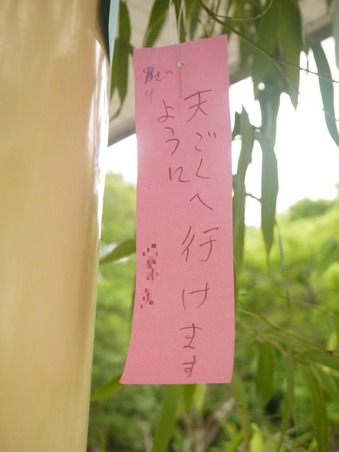 天ごくへ行けます
ように